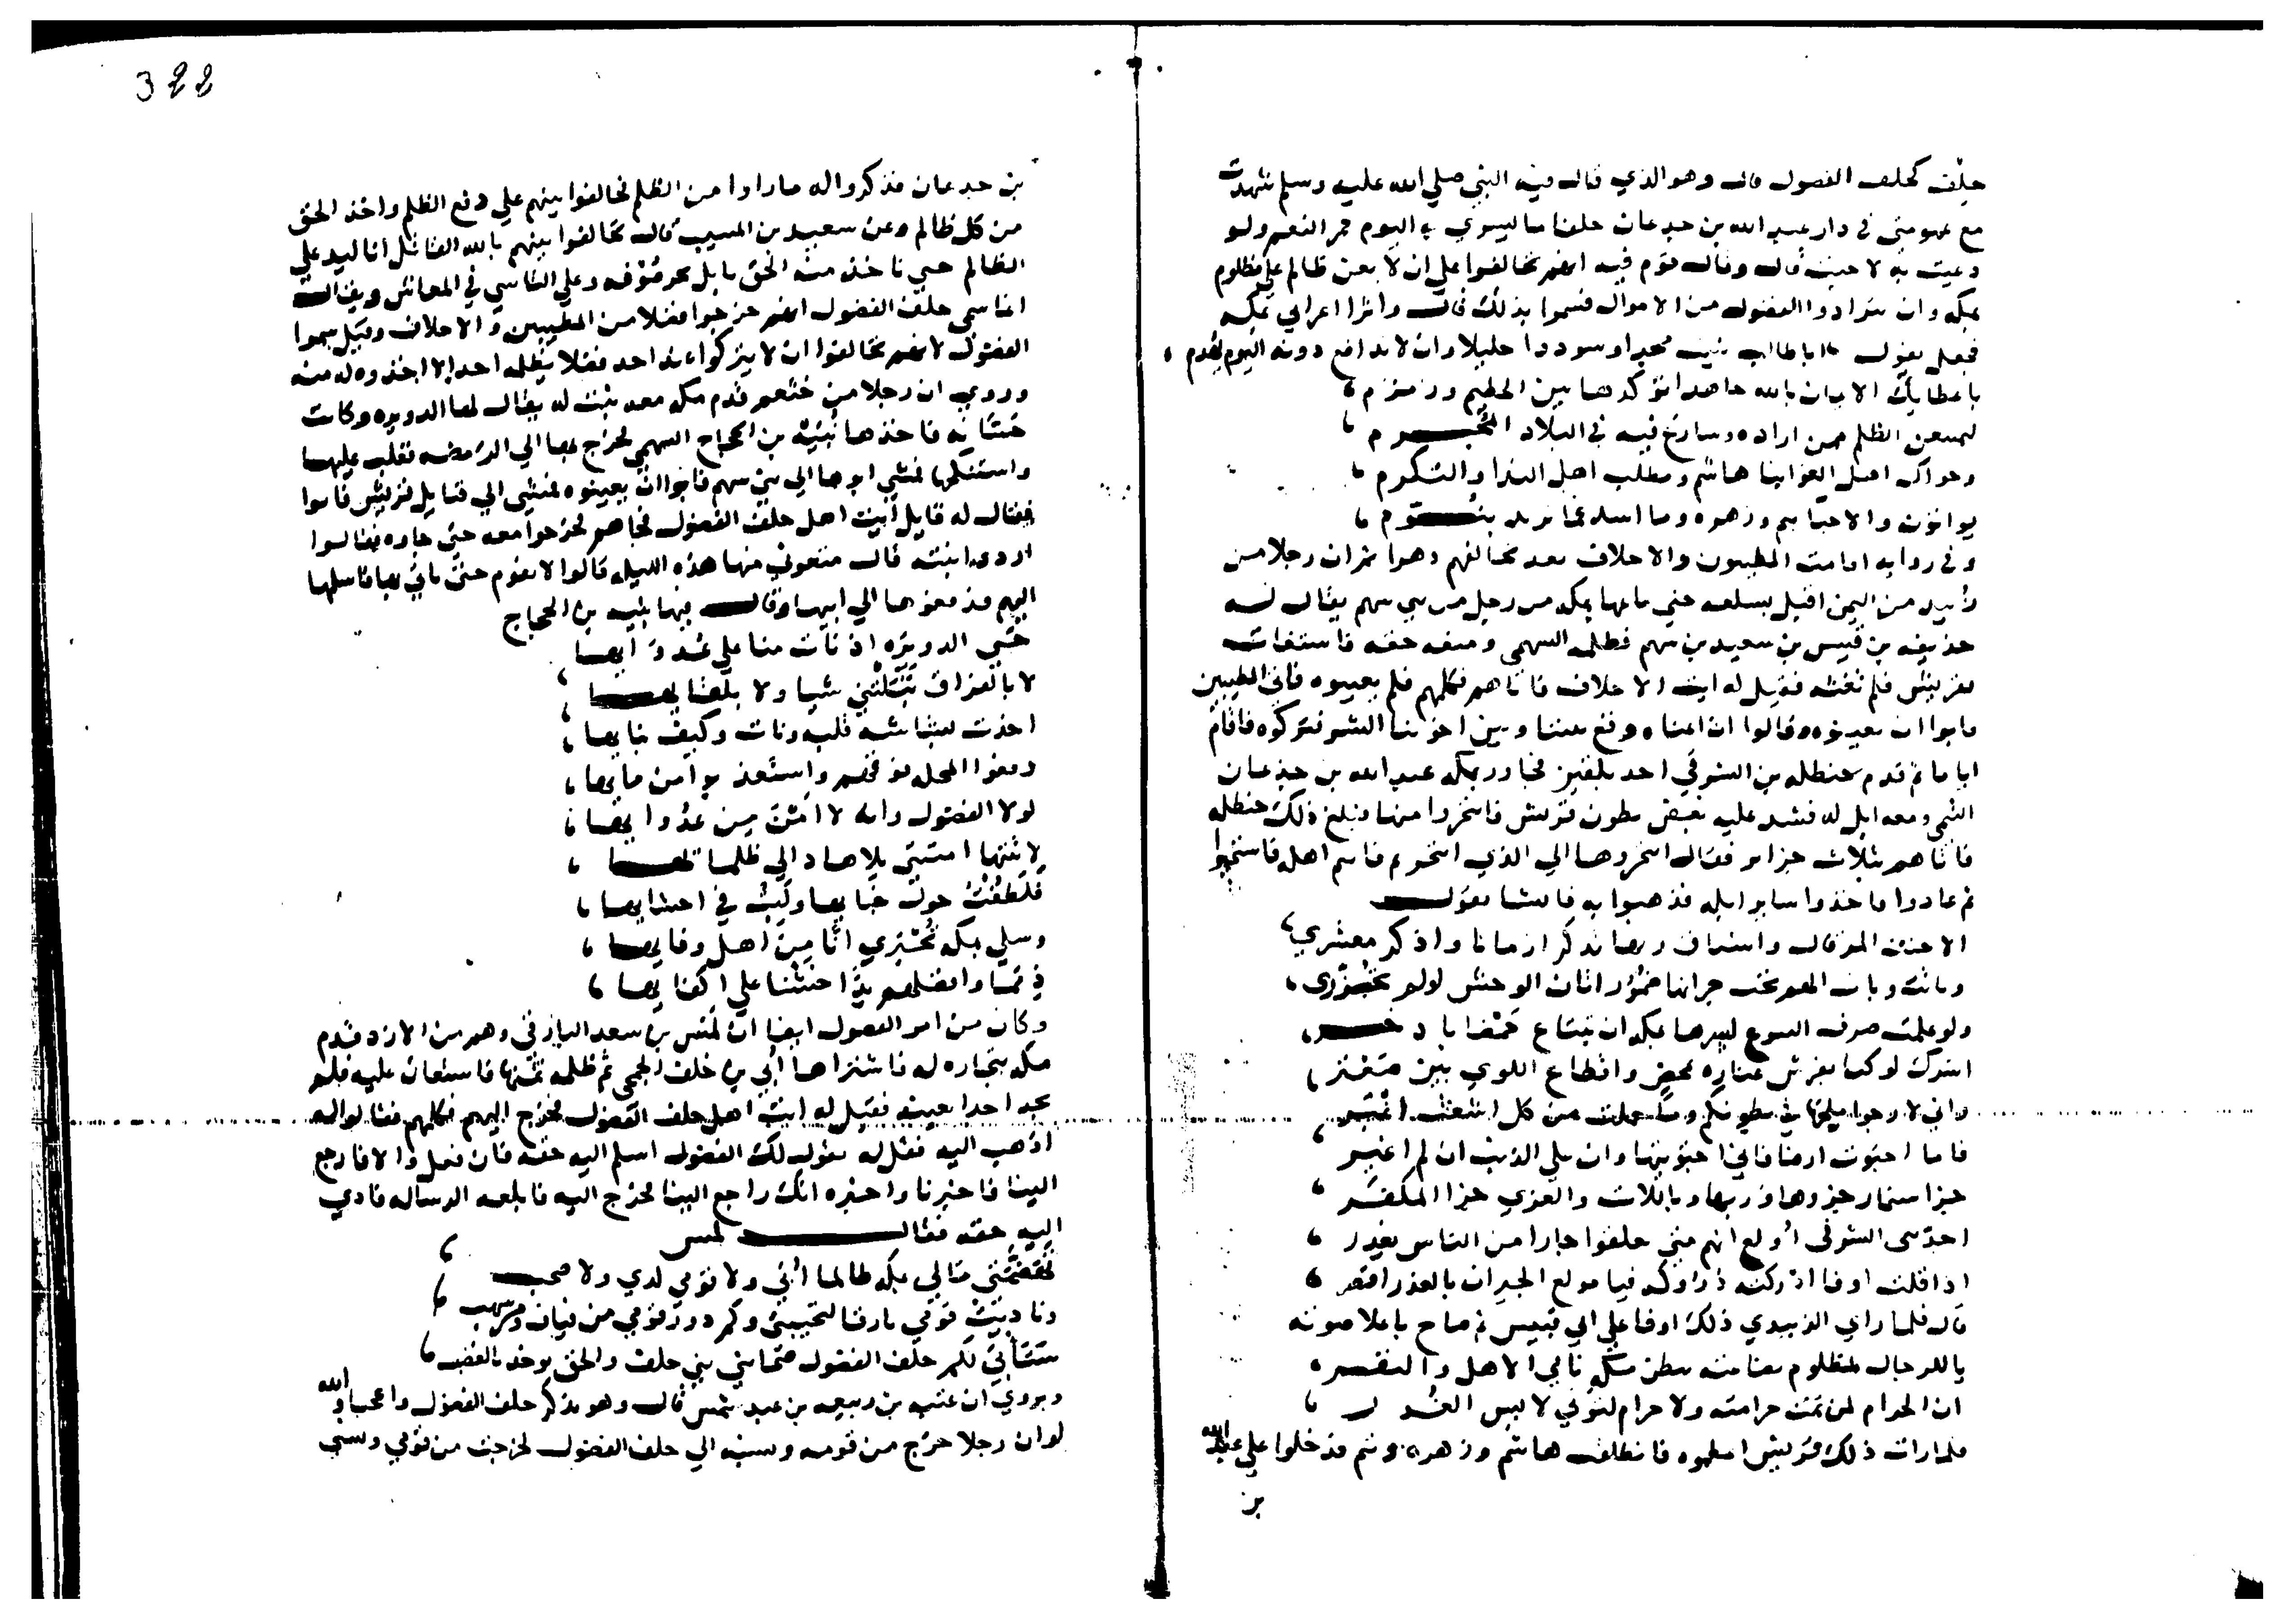 حلف كحلف الفضول قال وهو الذي قال فيه النبي صلي الله عليه وسلم شهدت
مع عمومتي في دار عبد الله بن جدعان حلفا ما يسرني به اليوم حمر النعم ولو
دعيت به لاجبت قال وقال قوم فيه انهم تحالفوا علي ان لا يعن ظالم علي مظلوم
بمكه وان يترادوا الفضول من الاموال فسموا بذلك قال واترا اعرابي بمكه
فجعل يقول ابا طالب مجدا وسوددا جليلا وان لا تدافع دونه اليوم
باعطايك الايمان بالله جاهدا توكدها بين الحطيم وزمزم
ليمنعن الظلم ممن اراده وسارع فيه في البلاد المحرم
هاشم ومطلب اهل الندا والتكرم
وزهره وما اسد عما نريد
وفي روايه اقامت المطيبون والاحلاف بعد تحالفهم دهرا ثم ان رجلا من
زبيد من اليمن اقبل بسلعه حتي باعها بمكه من رجل من بني سهم يقال له
حذيفه بن قيس بن سعيد بن سهم فظلمه السهمي ومنعه حقه فاستغاث
بقريش فلم تغثه فقيل له ايت الاحلاف فاتاهم فكلهم فلم يعينوه فاتي المطيبين
فابوا ان يعينوه وقالوا ان اعناه وقع بيننا وبين اخوتنا الشر فتركوه فاقام
اياما ثم قدم حنظله بن الشرقي احد بلقين فجاور بمكه عبد الله بن جدعان
التيمي ومعه ابل له فشد عليه بعض بطون قريش فانتحروا منها فبلغ ذلك حنظله
فاتاهم بثلاث جزاير فقال انحروها الي الذي انتحرتم فانتم اهله فانتحروا
ثم عادوا فاخذوا ساير ابله فذهبوا به فانشا يقول
الا حنت المرقال واشتاق ربها تذكر ازمانا واذكر معشري
وباتت وبات الهم تحت جرانها
ولو علمت صرف البيوع لسرها بمكه ان تبتاع حمضا باذخر
اسرك لو كنا
واني لارجو ملحها في بطونكم وما حملت من كل اشعث اغبر
فاما اجتوت ارضا فاني اجتويتها وان علي الذنب ان لم اغير
جزا سنمار جزوها وربها وباللات والعزي جزا المكفر
اجد بني الشرقي اولع انهم متي حلفوا جارا من الناس يغدر
اذا قلت اوفا ادركته دروكه فيا موزع الجيران بالغدر اقصر
قال فلما راي الزبيدي ذلك اوفا علي ابي قبيس ثم صاح باعلا صوته
ياللرجال لمظلوم بضاعته ببطن مكه نائي الاهل والنفر
ان الحرام لمن تمت حرامته ولا حرام لثوبي لابس الغدر
فلما رات ذلك قريش اعظموه فانطلقت هاشم وزهره وتيم فدخلوا علي عبد الله
بن
322
بن جدعان فذكروا له ما راوا من الظلم فتحالفوا بينهم علي دفع الظلم واخذ الحق
من كل ظالم وعن سعيد بن المسيب قال تحالفوا بينهم بالله القائل انا ليد علي
الظالم حتي ناخذ منه الحق ما بل بحر صوفه وعلي التاسي في المعاش ويقال
انما سمي حلف الفضول انهم خرجوا فضلا من المطيبين والاحلاف وقيل سموا
الفضول لانهم تحالفوا ان لا يتركوا عند احد فضلا يظلمه احدا الا اخذوه له منه
وروي ان رجلا من خثعم قدم مكه معه بنت له يقال لها الدويره وكانت
حسانه فاخذها نبيه بن الحجاج السهمي فخرج بها الي الدمضه فغلب عليها
واستنكحها فمشي ابوها الي بني سهم فابوا ان يعينوه فمشي الي قبايل قريش فابوا
فقال له قايل ايت اهل حلف الفضول فجاهم فخرجوا معه حتي جاوه فقالوا
اردد ابنته قال متعوني منها هذه الليله قالوا لا نقوم حتي تاتي بها فارسلها
اليهم فدفعوها الي ابيها وقال فيها نبيه بن الحجاج
حي الدويره اذ نات منا علي عدوائها
لا بالفراق تنيلني شيا ولا بلقائها
اخذت حشاشه قلبه ونات وكيف بنابها
لولا الفضول وانه لا امن من عدوايها
لاتيتها امشي بلا هاد الي ظلمايها
فلطفت حول خبايها ولبت في احشايها
وسلي بمكه تخبري انا من اهل وفايها
وكان من امر الفضول ايضا ان لميس بن سعد البارقي وهو من الازد قدم
مكه بتجاره له فاشتراها ابي بن خلف الجمحي ثم ظلمه ثمنها فاستعان عليه فلم
يجد احدا يعينه فقيل له ايت اهل حلف الفضول فخرج اليهم فكلهم فقالوا له
اذهب اليه فقل له يقول لك الفضول اسلم اليه حقه فان فعل والا فارجع
الينا فاخبرنا واخبره انك راجع الينا فخرج اليه فابلغه الرساله فادي
اليه حقه فقال لميس
تهضمني مالي بمكه ظالما ابي ولا قومي لدي ولا صحب
وناديت قومي بارقا لتجيبني وكم دون قومي من فياف ومن سهب
ستابي لكم حلف الفضول ظلامتي بني خلف والحق يوخذ بالغضب
ويروي ان عتبه بن ربيعه بن عبد شمس قال وهو يذكر حلف الفضول واعجبا والله
لو ان رجلا خرج من قومه ونسبه الي حلف الفضول لخرجت من قومي ونسبي